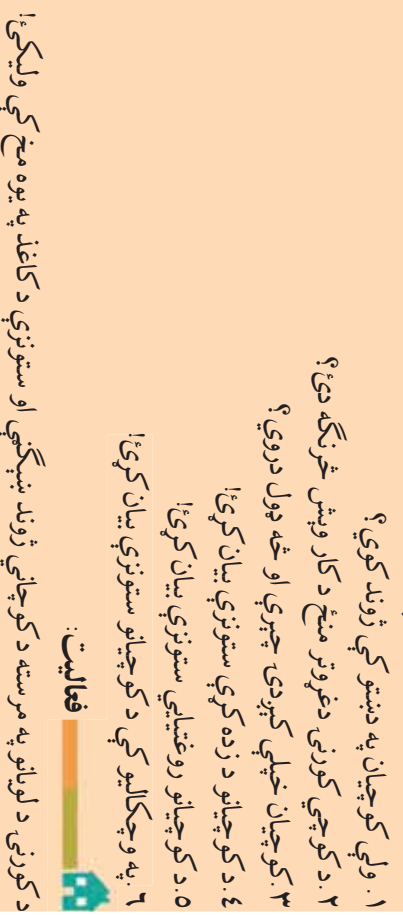 ۱. ولي کوچيان په دښتو کې ژوند کوي؟
۲. د کوچي کورنۍ د غړوتر منځ د کار وېش څرنګه دئ؟
۳. کوچيان خپلې کېږدۍ چېرې او څه ډول دروي؟
٤. د کوچيانو د زده کړې ستونزې بيان کړئ!
٥. د کوچيانو روغتيايي ستونزې بيان کړئ!
٦. په وچکاليو کې د کوچيانو ستونزې بيان کړئ!
فعاليت:
د کورنۍ د لويانو په مرسته د کوچياني ژوند ښېګڼې او ستونزې د کاغذ په يوه مخ کې وليکئ!